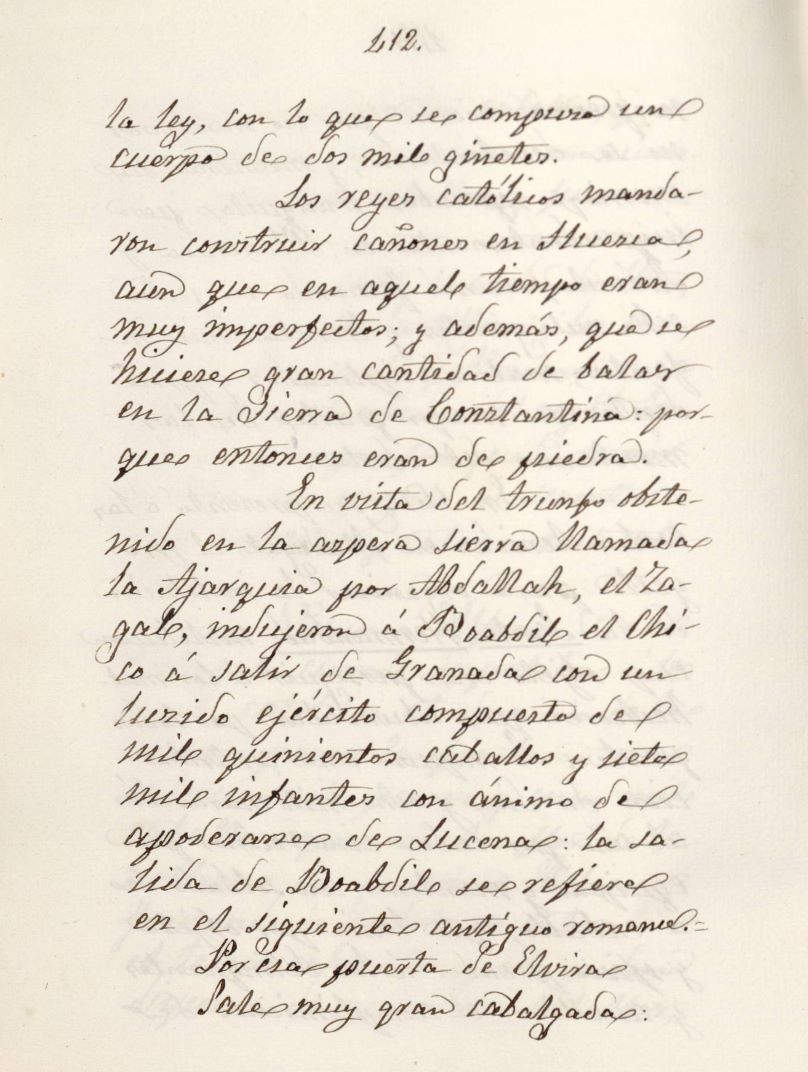 412.
la ley, con lo que se compuso un
cuerpo de dos mil ginetes.
Los reyes católicos manda-
ron construir cañones en Huesca,
aun que en aquel tiempo eran
muy imperfectos; y además, que se
hiciese gran cantidad de balas
en la Sierra de Constantina: por-
que entonces eran de piedra.
En vista del triunfo obte-
nido en la aspera sierra llamada
la Ajarquia por Abdallah, el Za-
gal, indujeron á Boabdil el Chi-
co á salir de Granada con un
luzido ejército compuesto de
mil quinientos caballos y siete
mil infantes con ánimo de
apoderarse de Lucena: la sa-
lida de Boabdil se refiere
en el siguiente antíguo romance.=
Por esa puerta de Elvira
Sale muy gran cabalgada: